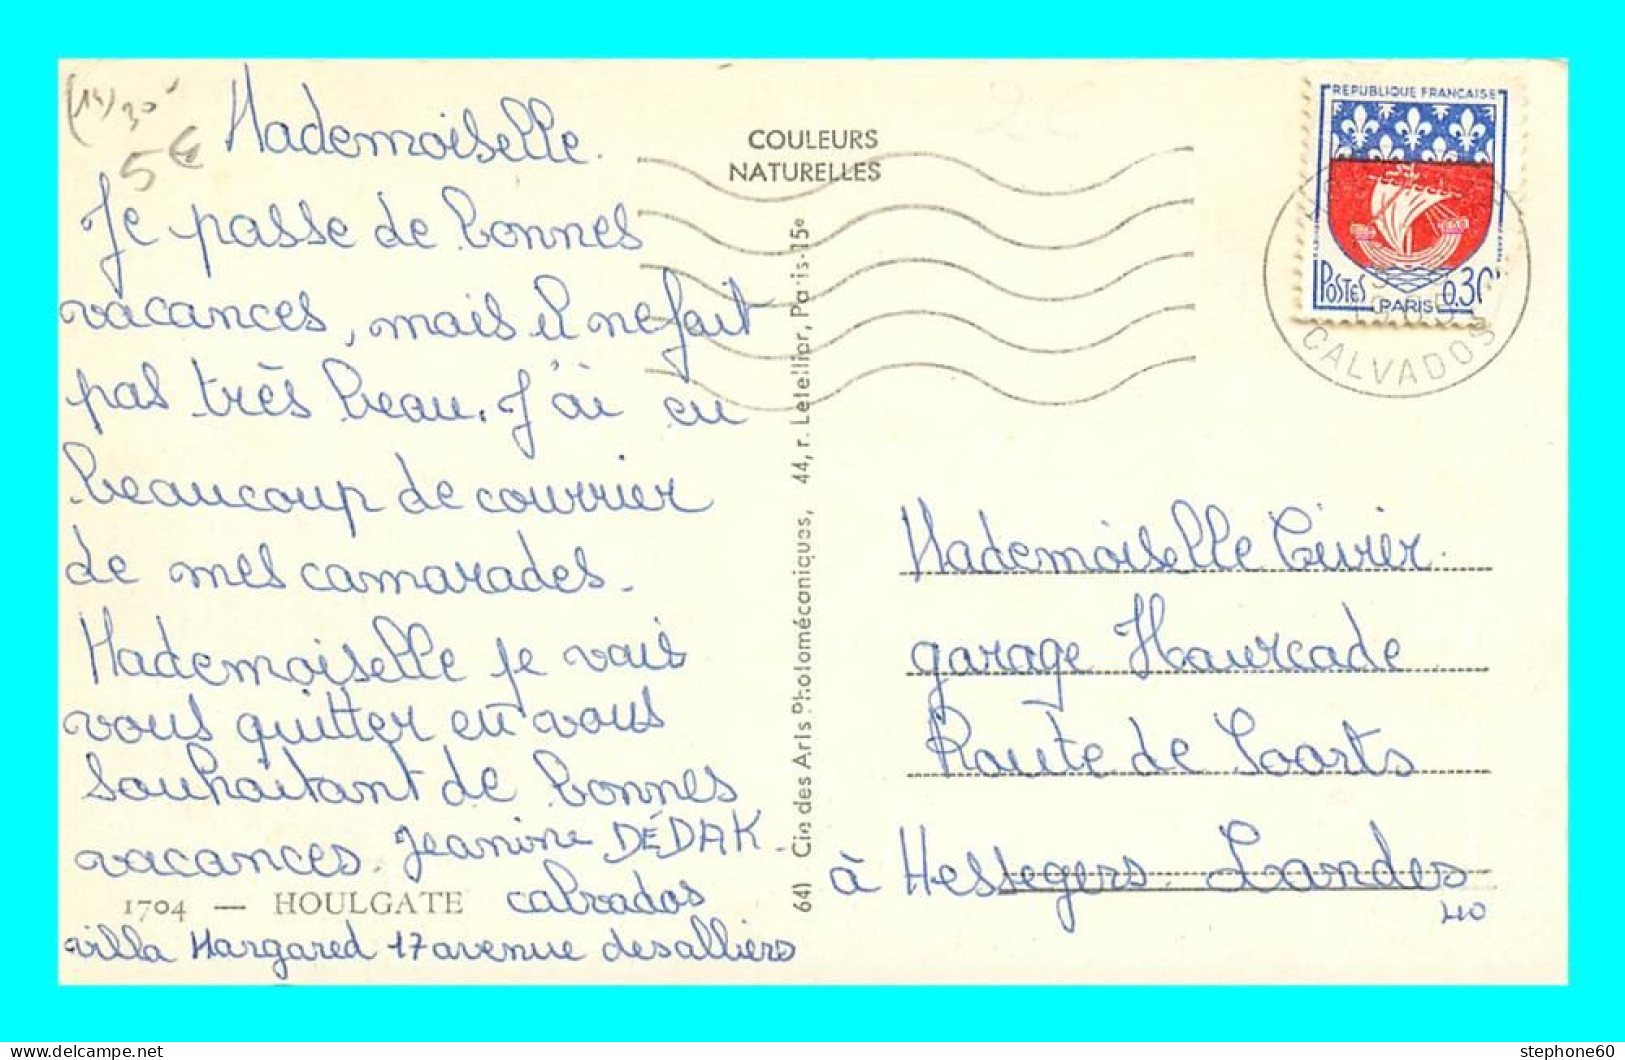 (14) 30'
5€
2€
Mademoiselle.
Je passe de bonnes
vacances, mais il ne fait
pas très beau. J'ai eu
beaucoup de courrier
de mes camarades.
Mademoiselle je vais
vous quitter en vous
souhaitant de bonnes
vacances. Jeanine DÉDAK.
1704 — HOULGATE
calvados
villa Margared 17 avenue des alliers
COULEURS
NATURELLES
641 Cie des Arts Photomécaniques, 44, r. Letellier, Paris-15e
REPUBLIQUE FRANCAISE
POSTES
PARIS
0.30
CALVADOS
Mademoiselle
garage Hourcade
Route de Soorts
à Hossegors. Landes
40
stephone60